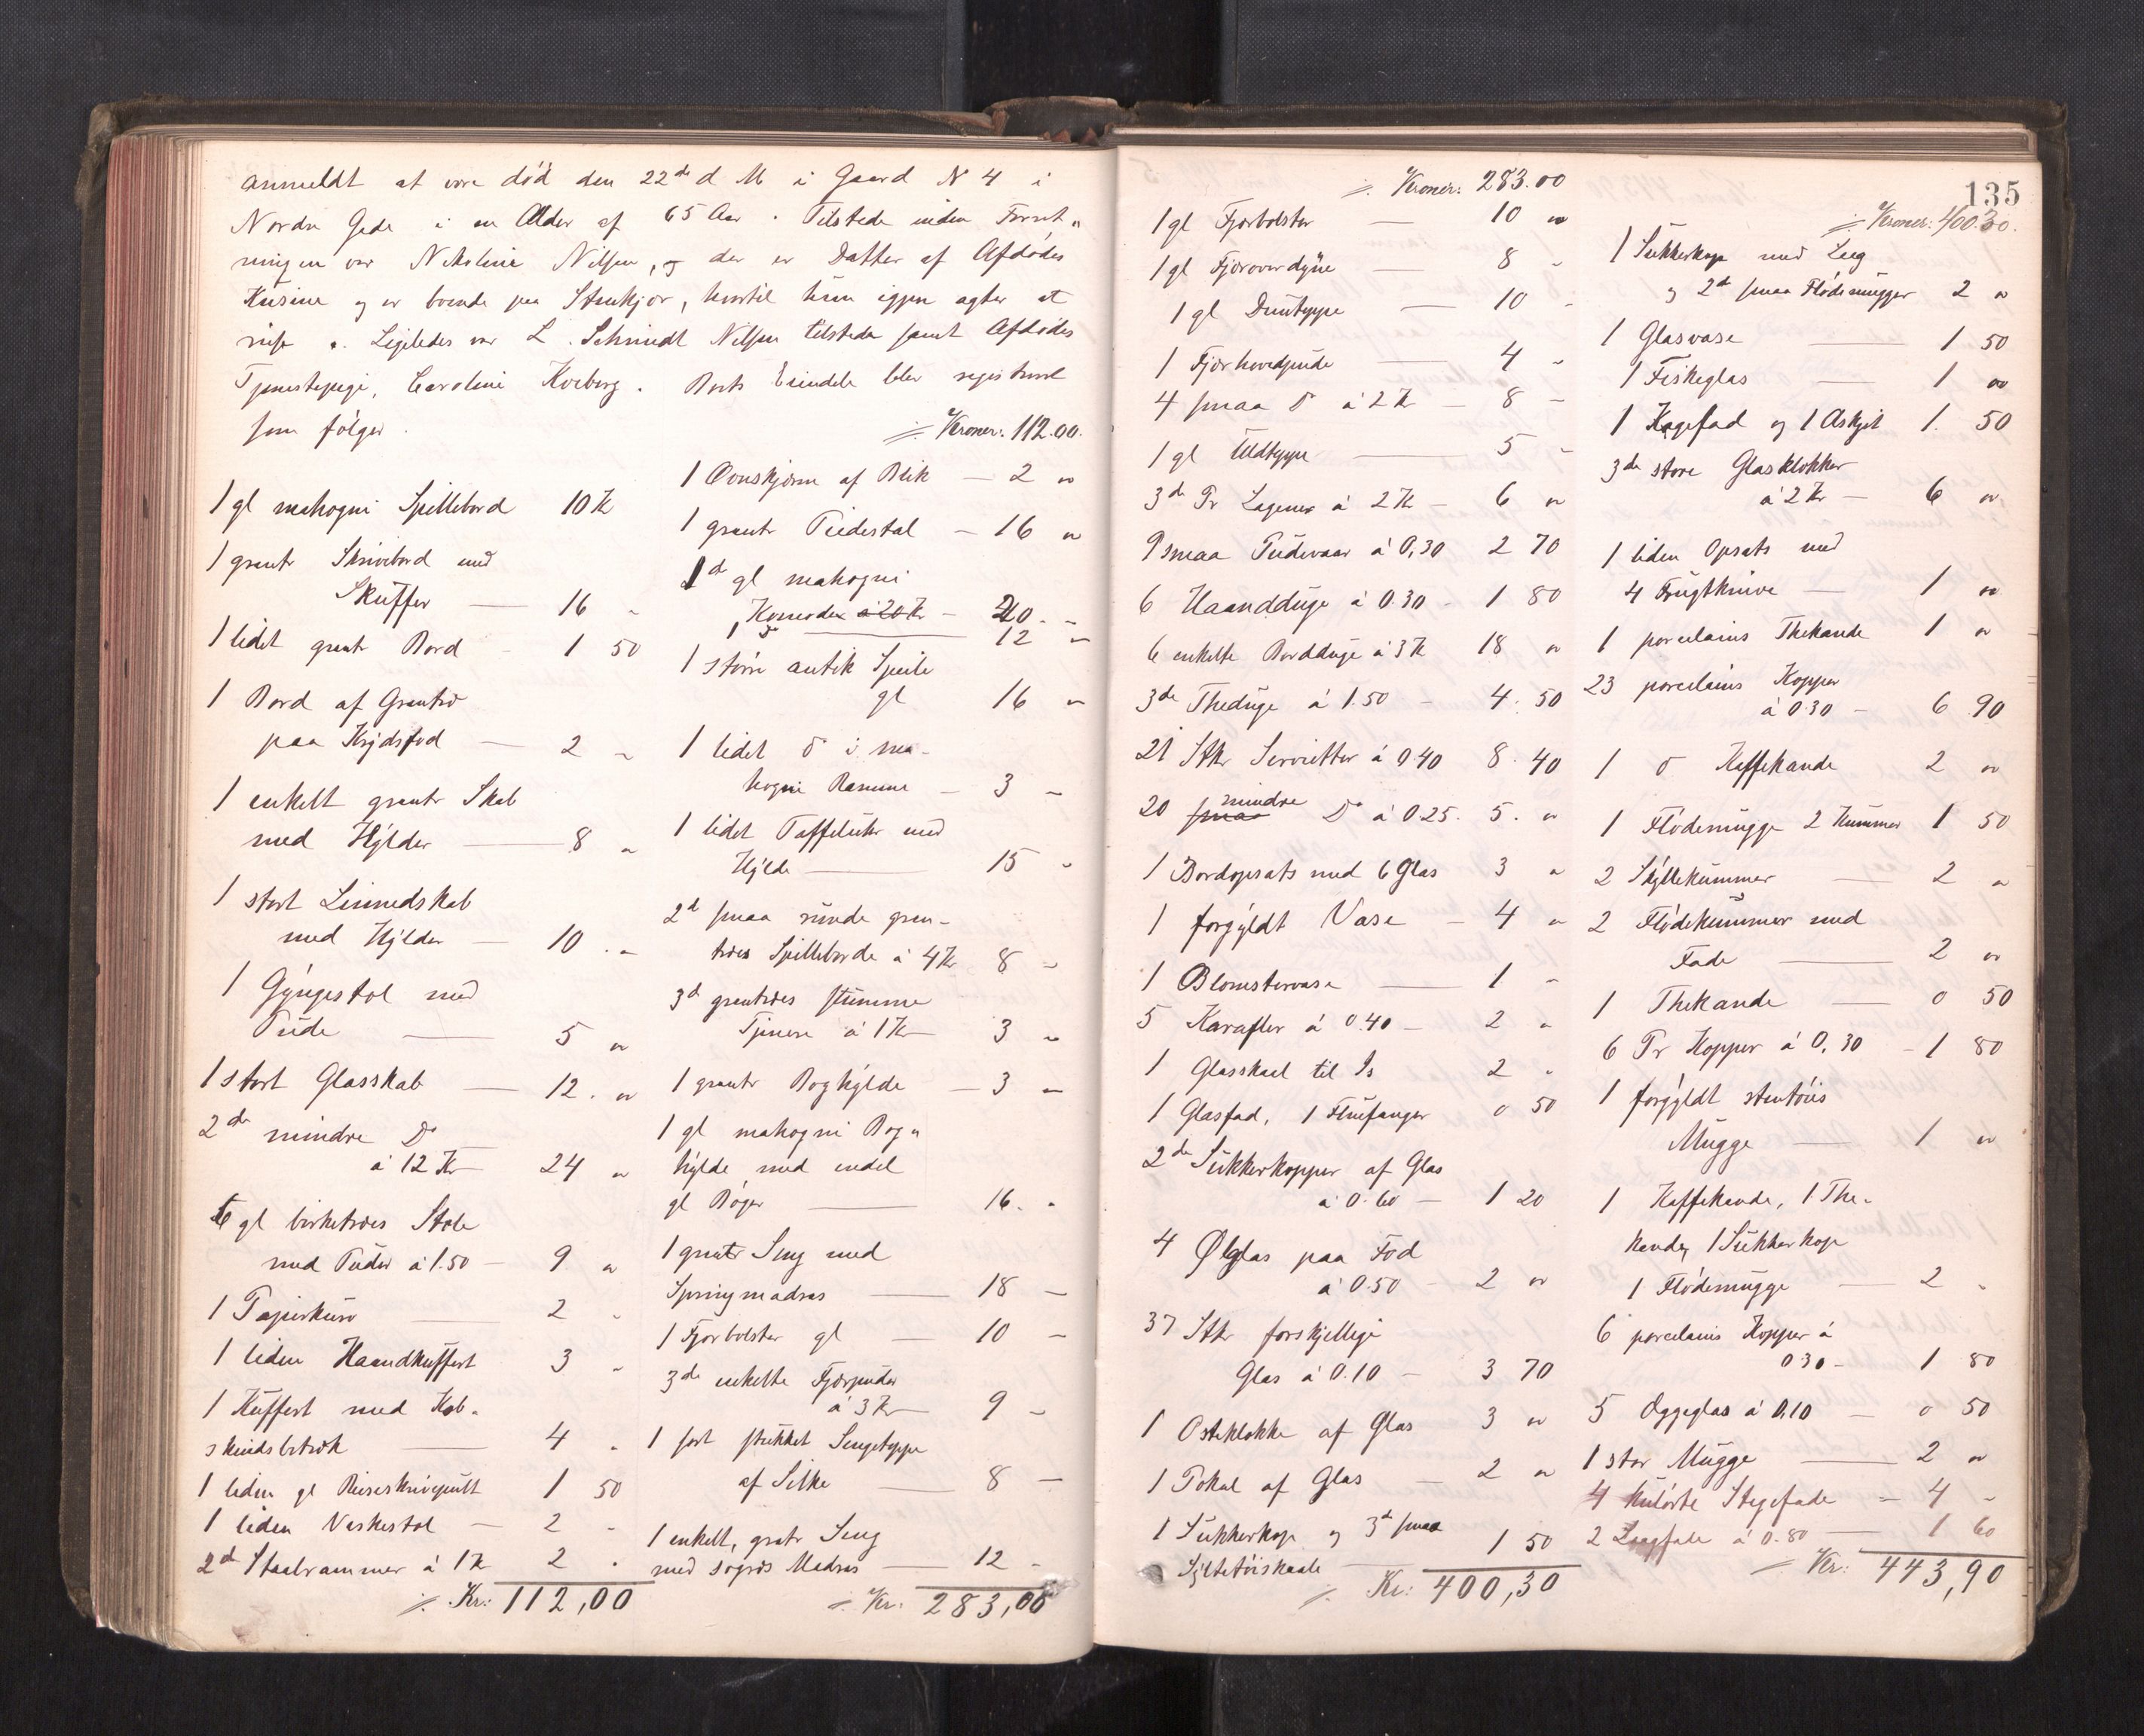 anmeldt at være död den 22de d M i Gaard N 4 i
Nordre Gede i en Alder af 65 Aar. Tilstede under Forret„
ningen var Nikoline Nilsen, og der er Datter af Afdödes
Kusine og er boende paa Stenkjær, hvortil hun igjen agter at
reise. Ligeledes var L. Schmidt Nilsen tilstede samt Afdödes
Tjenestepige, Caroline Korberg. Boets Eiendele blev registreret
som fölger.
1 gl mahogni Spillebord 10 Kr
1 grantr Skrivebord med
Skuffer — 16 "
1 lidet grantr Bord - 1 50
1 Bord af Grantræ
paa Krydsfod — 2 "
1 enkelt grantr Skab
med Hylder — 8 "
1 stort Linnedskab
med Hylder — 10 . "
1 Gyngestol med
Pude — 5 "
1 stort Glasskab — 12. "
2de mindre Do
à 12 Kr — 24 "
6 gl birketræs Stole
med Puder à 1.50 — 9 "
1 Papirkurv — 2 "
1 liden Haandkuffert 3 "
1 Kuffert med Kob-
skindsbetræk — 4 "
1 liden gl Reiseskrivepult 1 50
1 liden Vaskestol — 2 -
2d Staalrammer à 1 Kr 2 "
⁒ Kr: 112,00
⁒ Kroner: 112.00.
1 Ovnskjærm af Blik — 2 "
1 grantr Piedestal — 16 "
1d gl mahogni
Komode à 20 Kr — 20. -
1 do — 12 -
1 större antik Speile
gl 16 "
1 lidet do i ma-
hogni Ramme — 3 -
1 lidet Taffeluhr med
Hylde — 15 -
2d smaa runde gran-
træes Spilleborde à 4 Kr 8 -
3d grantræes stumme
Tjenere à 1 Kr — 3 -
1 grantr Boghylde — 3 -
1 gl mahogni Bog„
hylde med endel
gl Böger — 16. -
1 grantr Seng med
Springmadras — 18 -
1 Fjærbolster gl — 10 -
3de enkelte Fjærpuder
à 3 Kr — 9 -
1 sort stukket Sengetæppe
af Silke — 8 -
1 enkelt, grantr Seng
med søgræs Madras — 12 -
⁒ Kr: 283,00
⁒ Kroner: 283.00
1 gl Fjærbolster — 10 "
1 gl Fjæroverdyne — 8 -
1 gl Duntæppe — 10 -
1 Fjærhovedpude — 4 -
4 smaa do à 2 Kr — 8 -
1 gl Uldtæppe — 5 -
3de Pr Lagener à 2 Kr — 6 "
9 smaa Pudevaar à 0,30 2 70
6 Haandduge à 0.30 - 1 80
6 enkelte Bordduge à 3 Kr 18 "
3de Theduge à 1.50 - 4. 50
21 Stkr Servietter à 0.40 8. 40
20 smaa mindre Do à 0.25. 5. "
1 Bordopsats med 6 Glas 3 "
1 forgyldt Vase — 4 "
1 Blomstervase — 1 -
5 Karafler à 0.40 — 2 "
1 Glasskaal til Is 2 "
1 Glasfad, 1 Fluefanger 0 50
2de Sukkerkopper af Glas
à 0.60 — 1 20
4 Ølglas paa Fod
à 0.50 - 2 "
37 Stkr forskjellige
Glas à 0.10 — 3 70
1 Osteklokke af Glas 3 "
1 Pokal af Glas — 2 "
1 Sukkerkop og 3d smaa
Syltetöiskaale — 1 50
⁒ Kr: 400,30
135
⁒ Kroner: 400.30.
1 Sukkerkop med Laag
og 2de smaa Flödemugger 2 "
1 Glasvase — 1 50
1 Fiskeglas — 1 "
1 Kagefad og 1 Askjet 1. 50
3de store Glasklokker
à 2 Kr — 6 "
1 liden Opsats med
4 Frugtknive — 1 "
1 porcelains Thekande 1 "
23 porcelains Kopper
à 0.30 — 6 90
1 do Kaffekande 2 "
1 Flödemugge 2 Kummer 1 50
2 Skyllekummer — 2 "
2 Flödekummer med
Fade — 2 "
1 Thekande — 0 50
6 Pr Kopper à 0,30 — 1 80
1 forgyldt stentöis
Mugge — 1 "
1 Kaffekande, 1 The-
kande, 1 Sukkerkop
1 Flödemugge — 2 -
6 porcelains Kopper à
0.30 — 1 80
5 Æggeglas à 0,10 — 0 50
1 stor Mugge — 2 "
4 kulörte Stegefade — 4 -
2 Laagfade à 0.80 — 1 60
⁒ Kr: 443,90